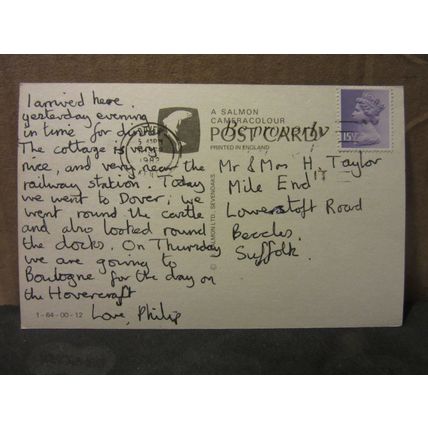 I arrived here
yesterday evening
in time for dinner.
The cottage is very
nice, and very near the
railway station. Today
we went to Dover; we
went round the castle
and also looked round
the docks. On Thursday
we are going to
Boulogne for the day on
the Hovercraft
Love, Philip
1-64-00-12
A SALMON
CAMERACOLOUR
POST CARD
PRINTED IN ENGLAND
© SALMON LTD. SEVENOAKS
Be properly
15½P
Mr & Mrs H. Taylor
Mile End
Lowestoft Road
Beccles
Suffolk.